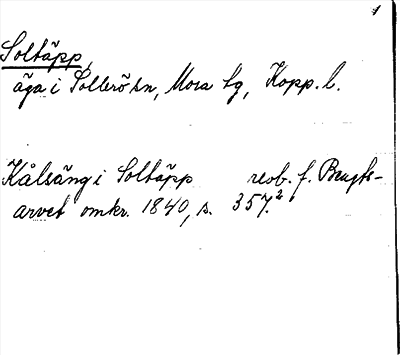 1
Soltäpp,
äga i Sollerö sn, Mora tg, Kopp. l.
Kålsäng i Soltäpp resb. f. Bengts-
arvet omkr. 1840, s. 357.²